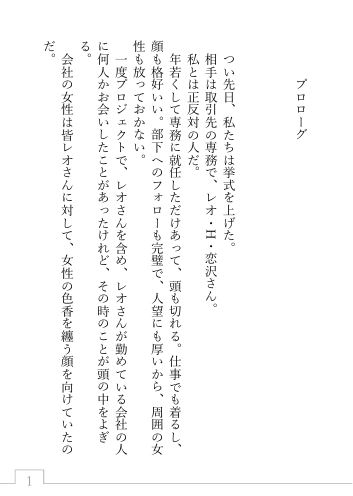 プロローグ
つい先日、私たちは挙式を上げた。
相手は取引先の専務で、レオ・H・恋沢さん。
私とは正反対の人だ。
年若くして専務に就任しただけあって、頭も切れる。仕事でも着るし、
顔も格好いい。部下へのフォローも完璧で、人望にも厚いから、周囲の女
性も放っておかない。
一度プロジェクトで、レオさんを含め、レオさんが勤めている会社の人
に何人かお会いしたことがあったけれど、その時のことが頭の中をよぎ
る。
会社の女性は皆レオさんに対して、女性の色香を纏う顔を向けていたの
だ。
1